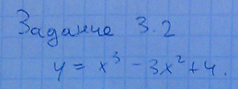 Задание 3.2
y = x³ - 3x² + 4.